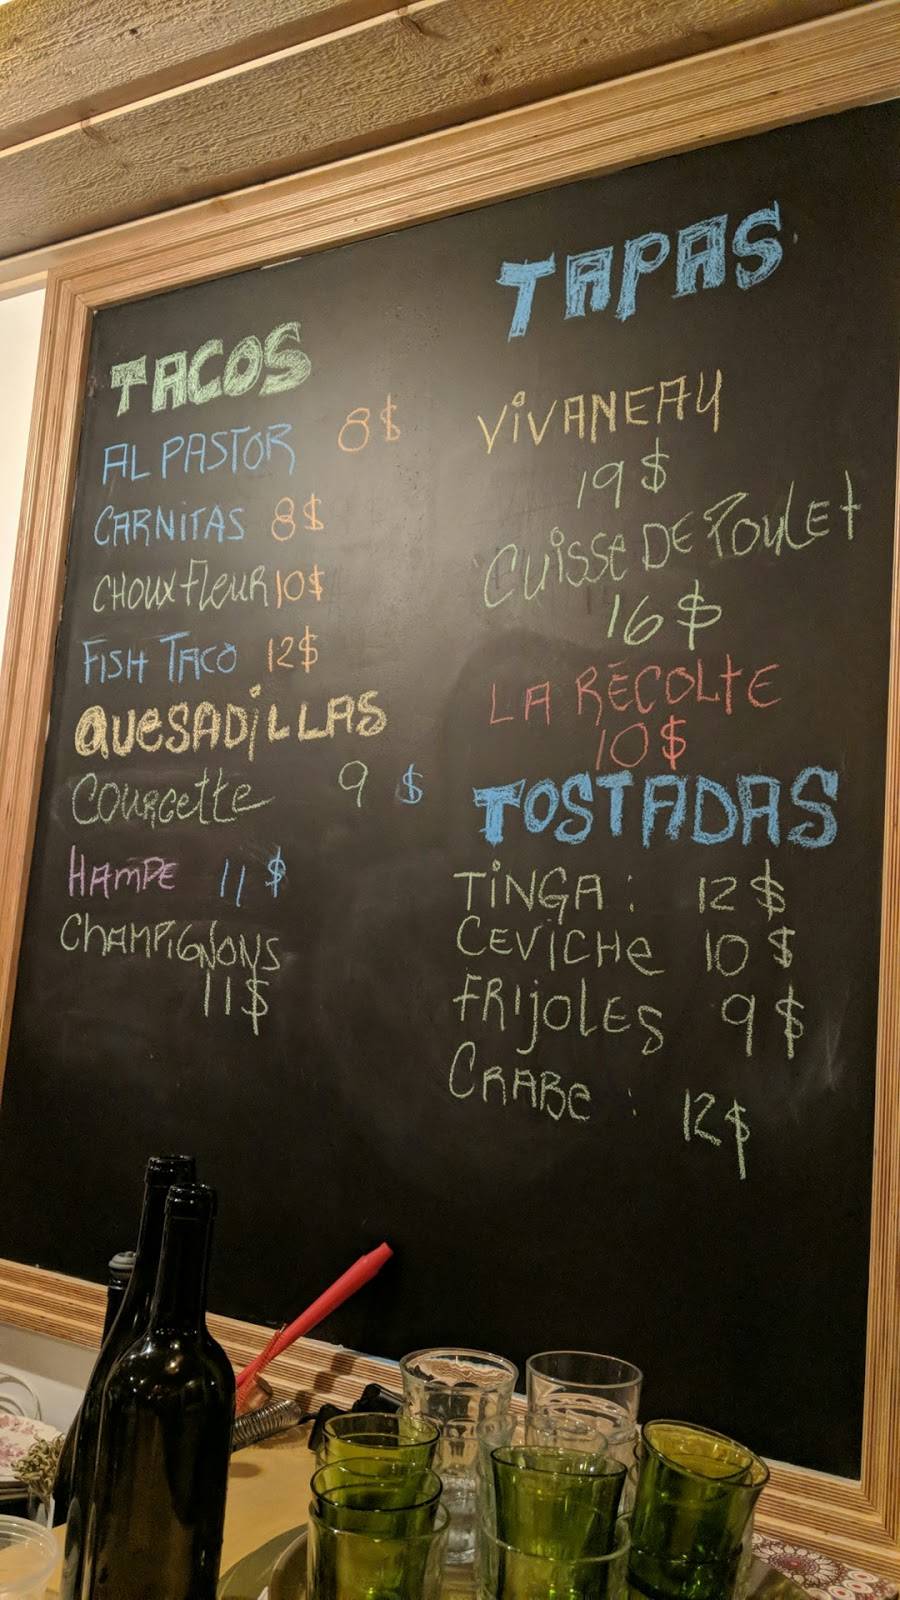 TACOS
AL PASTOR 8$
CARNITAS 8$
CHOUX FLEUR 10$
FISH TACO 12$
QUESADILLAS
COURGETTE 9 $
HAMPE 11$
CHAMPIGNONS
11$
TAPAS
VIVANEAU
19$
CUISSE DE POULET
16$
LA RÉCOLTE
10$
TOSTADAS
TINGA : 12$
CEVICHE 10$
FRIJOLES 9$
CRABE : 12$